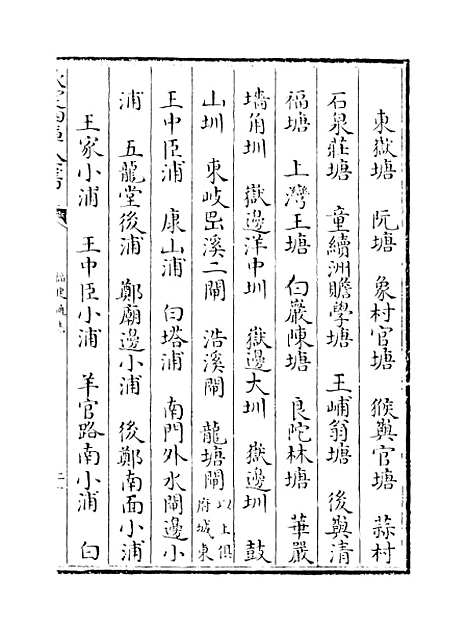 東嶽塘 阮塘 象村官塘 猴與官塘 蒜村
石泉莊塘 童續洲贍學塘 王峬翁塘 後與清
福塘 上灣王塘 白巖陳塘 良陀林塘 華嚴
墻角圳 嶽邊洋中圳 嶽邊大圳 嶽邊圳 鼓
山圳 東岐嵒溪二閘 浩溪閘 龍塘閘 以上俱府城東
王中臣浦 康山浦 白塔浦 南門外水閘邊小
浦 五龍堂後浦 鄭廟邊小浦 後鄭南面小浦
王家小浦 王中臣小浦 羊官路南小浦 白
欽定四庫全書